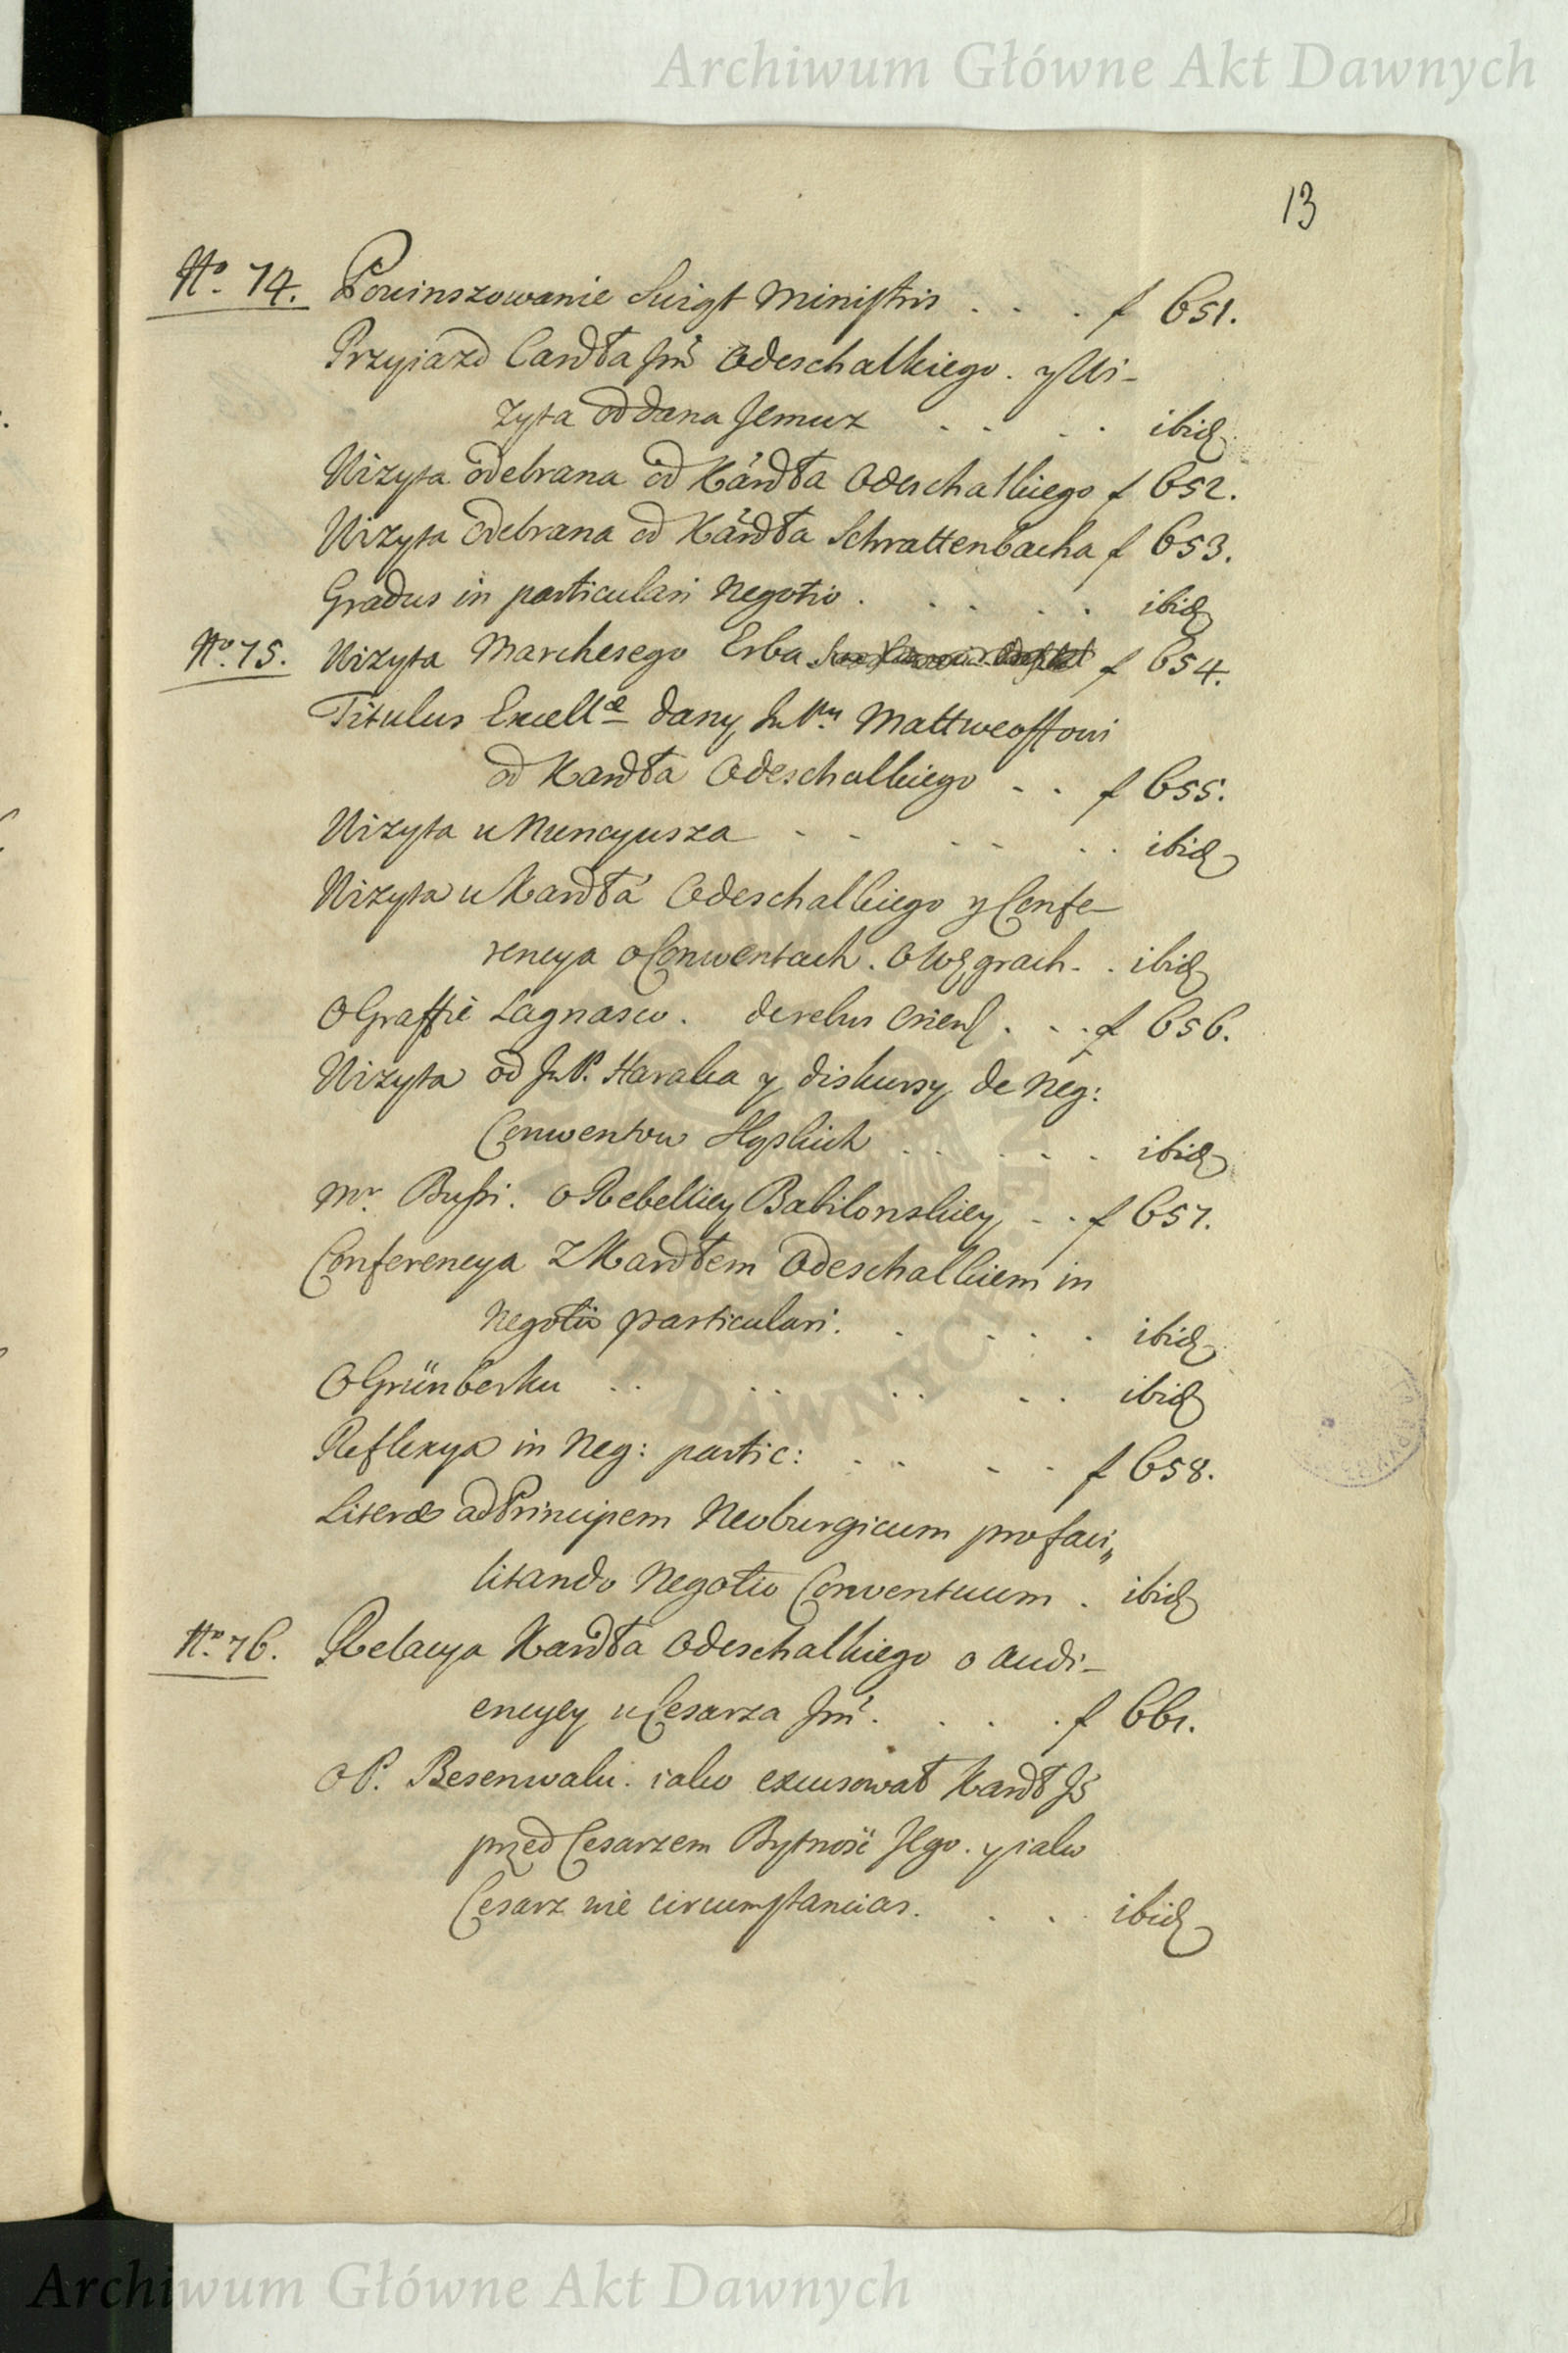 Archiwum Główne Akt Dawnych
13
No. 74. Powinszowanie Swiąt Ministris . . . . f 651.
Przyiazd Cardła Jmć Odeschalkiego. y Wi-
zyta oddana Jemuz . . . . ibid
Wizyta odebrana od Kardła Odeschalkiego f 652.
Wizyta odebrana od Kardła Schrattenbacha f 653.
Gradus in particulari Negotio . . . . . ibid
No. 75. Wizyta Marchesego Erba f 654.
Titulus Excellæ dany JmPu Mattweoffowi
od Kardła Odeschalkiego . . f 655.
Wizyta u Nuncyusza . . . . . . ibid
Wizyta u Kardła Odeschalkiego y Confe-
rencya o Conwentach. o Węgrach. . ibid
O Graffie Lagnasco. de rebus Orient . . . f 656.
Wizyta od JmP. Haraka y diskursy de Neg:
Conwentow Sląskich . . . . . ibid
Mr. Bussi. o Rebelliey Babilonskiey . . f 657.
Conferencya z Kardłem Odeschalkiem in
Negotio particulari. . . . . ibid
O Grünberku . . . . . . . . ibid
Reflexya in Neg: partic: . . . . f 658.
Literæ ad Principem Neoburgicum pro faci„
litando Negotio Conventuum . ibid
No. 76. Relacya Kardła Odeschalkiego o audi-
encyey u Cesarza Jmć. . . . . f 661.
O P. Besenwalu. iako excusował Kardł Jć
przed Cesarzem Bytność Jego. y iako
Cesarz wie circumstancias. . . . ibid
Archiwum Główne Akt Dawnych